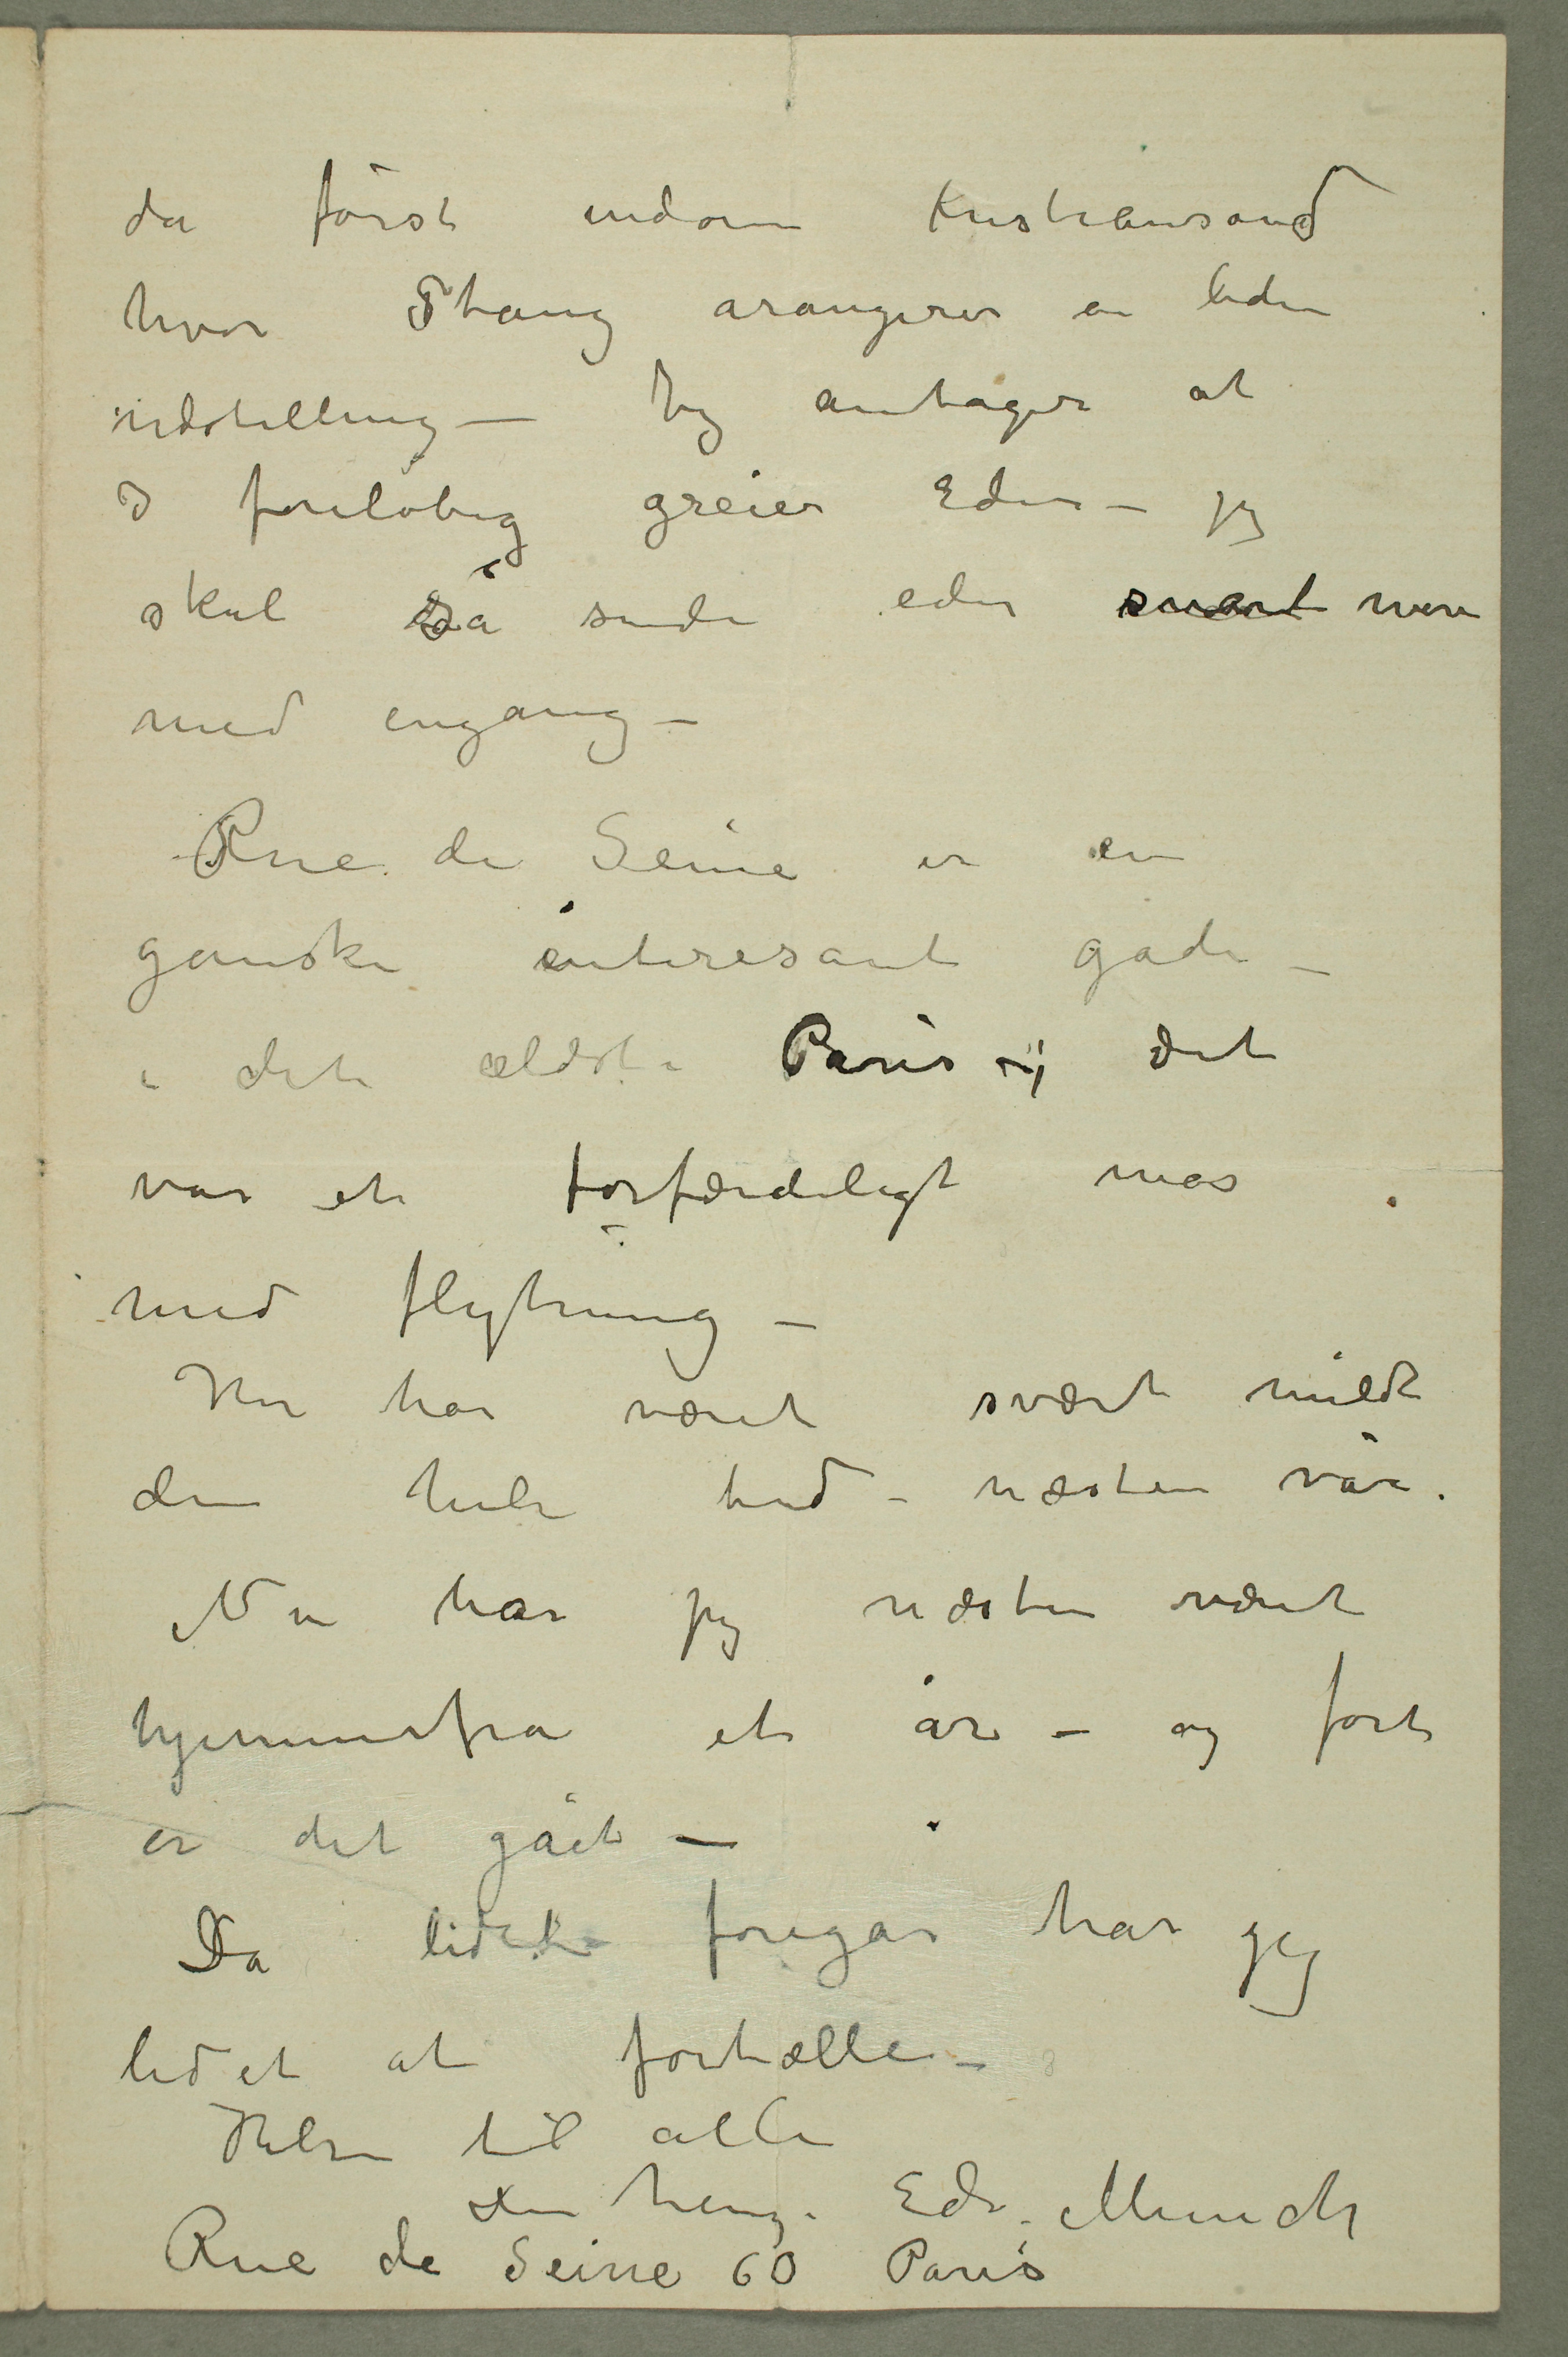 da først indom Kristiansand
hvor Thang arangerer en liden
udstilling – Jeg antager at
I foreløbig greier Eder – jeg
skal så sende eder snart mere
med engang –
Rue de Seine er en
ganske interesant gade –
i det ældste Paris –; det
var et forfærdeligt mas
med flytning –
Her har været svært mildt
den hele tid – næsten vår.
Nu har jeg næsten været
hjemmefra et år – og fort
er det gået –
Da lidet foregår har jeg
lidet at fortælle –
Hilsen til alle
Din heng. Edv. Munch
Rue de Seine 60 Paris